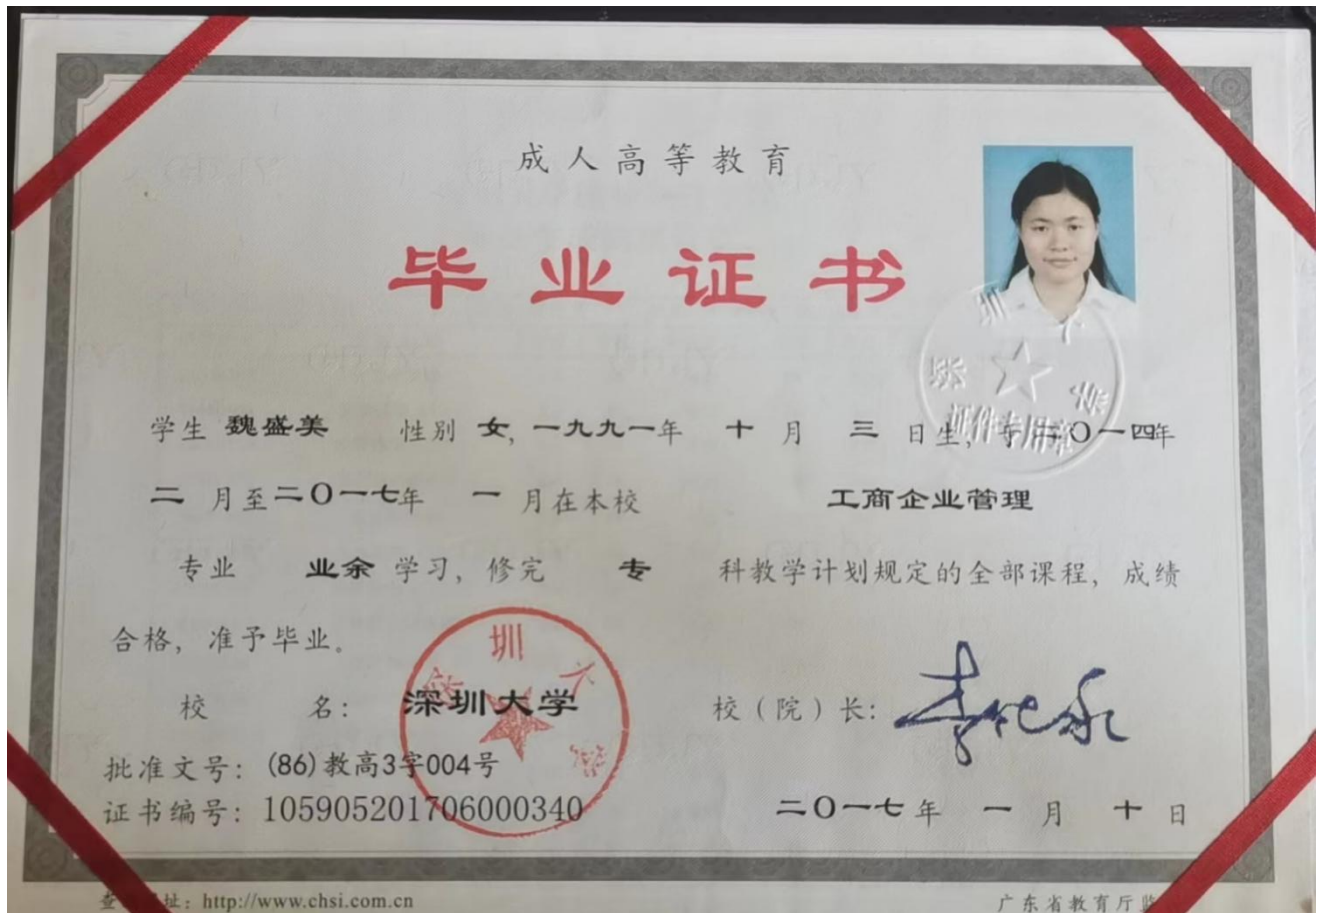 成人高等教育
毕业证书
学生 魏盛美 性别 女，一九九一年 十 月 三 日生，于二〇一四年
二 月至二〇一七年 一 月在本校 工商企业管理
专业 业余 学习，修完 专 科教学计划规定的全部课程，成绩
合格，准予毕业。
校 名：深圳大学 校（院）长：
批准文号：(86)教高3字004号
证书编号：105905201706000340 二〇一七年 一 月 十 日
证件专用章
圳
址：http://www.chsi.com.cn 广东省教育厅监